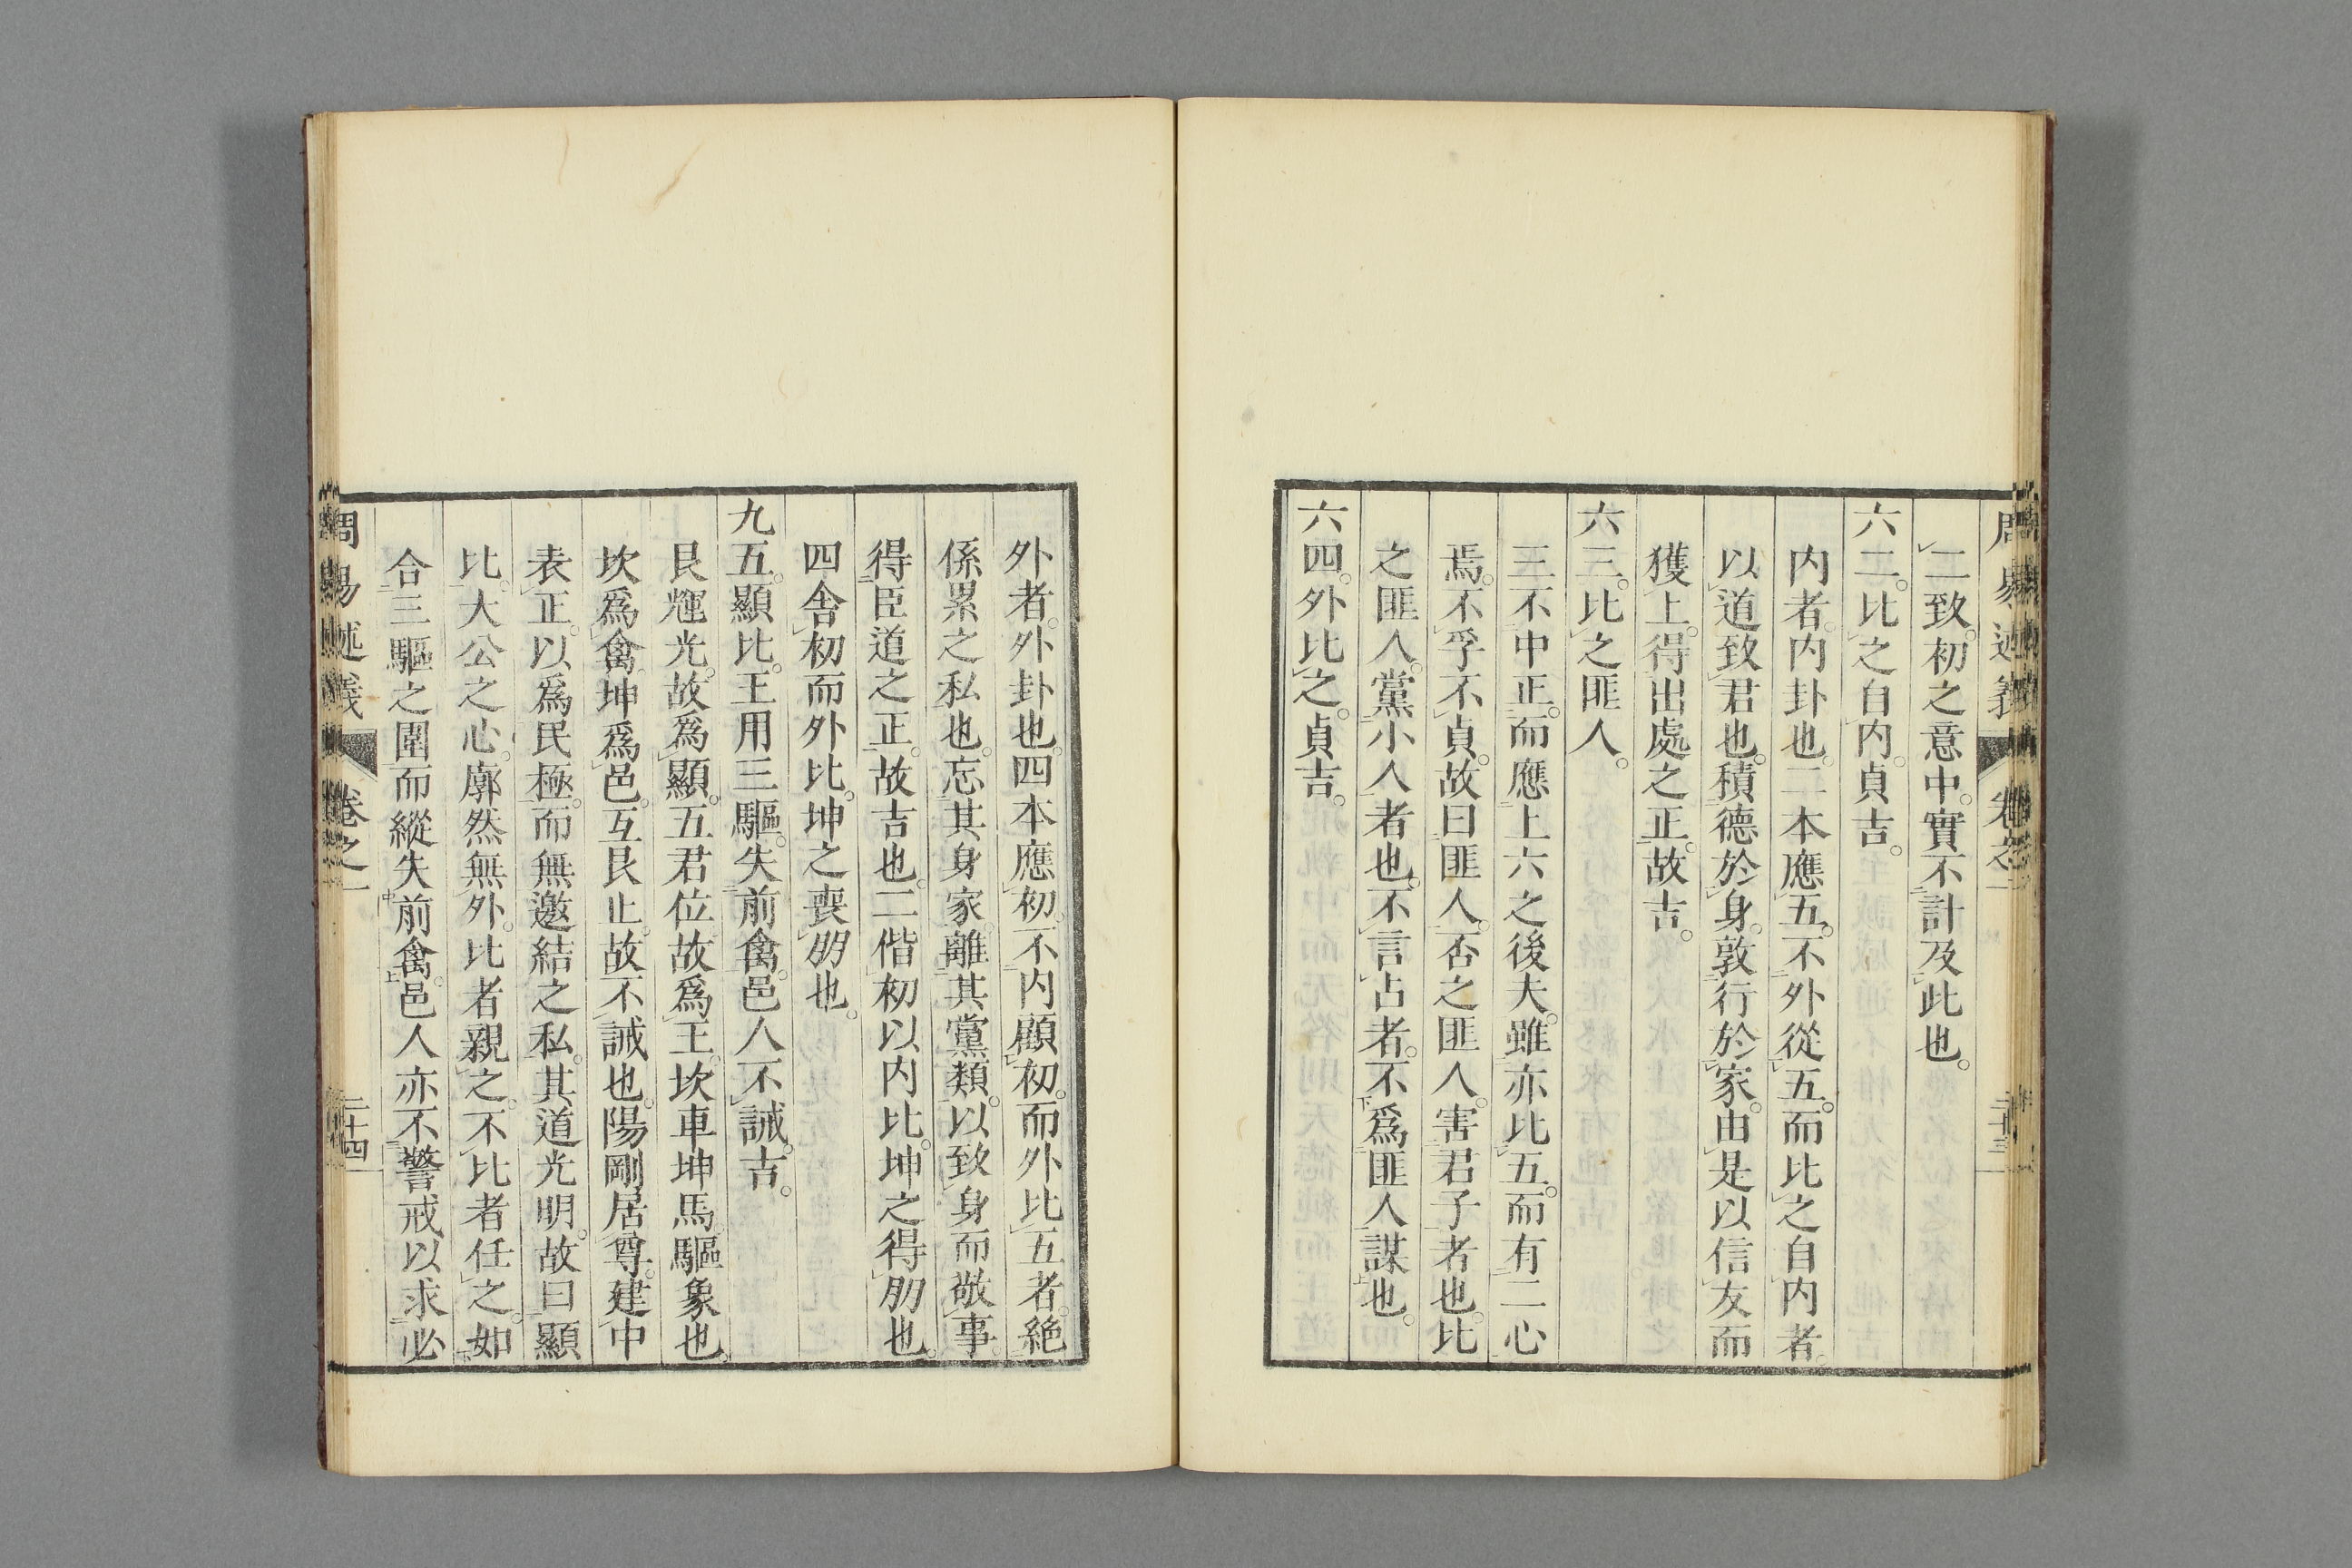 周易述義 卷之一 二十三
二致。初之意中。實不計及此也。
六二。比之自内。貞吉。
内者。内卦也。二本應五。不外從五。而比之自内者。
以道致君也。積德於身。敦行於家。由是以信友而
獲上。得出處之正。故吉。
六三。比之匪人。
三不中正。而應上六之後夫。雖亦比五。而有二心
焉。不孚不貞。故曰匪人。否之匪人。害君子者也。比
之匪人。黨小人者也。不言占者。不爲匪人謀也。
六四。外比之。貞吉。
外者。外卦也。四本應初。不内顧初。而外比五者。絶
係累之私也。忘其身家。離其黨類。以致身而敬事。
得臣道之正。故吉也。二偕初以内比。坤之得朋也。
四舍初而外比。坤之喪朋也。
九五。顯比。王用三驅。失前禽。邑人不誡。吉。
艮輝光。故爲顯。五君位。故爲王。坎車坤馬驅象也。
坎爲禽。坤爲邑。互艮止。故不誡也。陽剛居尊。建中
表正。以爲民極。而無邀結之私。其道光明。故曰顯
比。大公之心。廓然無外。比者親之。不比者任之。如
合三驅之圍而縱失前禽。邑人亦不警戒以求必
周易述義 卷之一 二十四